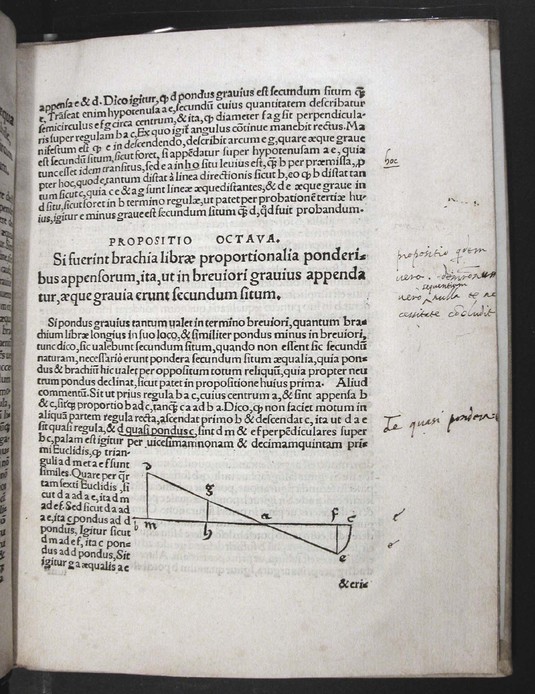 appensa e & d. Dico igitur, ꝙ d pondus grauius est secundum situm q̃
e. Trãseat enim hypotenusa a e, secundũ cuius quantitatem describatur
semicirculus e f g circa centrum, & ita, ꝙ diameter f a g sit perpendicula-
ris super regulam b a c. Ex quo igit̃ angulus cõtinue manebit rectus. Ma
nifestum est ꝙ e in descendendo, describit arcum e g, quare æque graue
est secundũ situm, sicut foret, si appẽdatur super hypotenusam a e, quia
tunc esset idem transitus, sed e a in ho situ leuius est, q̃ b per præmissa,
pter hoc, quod e, tantum distat à linea directionis sicut b, eo ꝙ b distat tan
tum sicut c, quia c e & a g sunt lineæ æquedistantes, & d e æque graue in
d situ, sicut foret in b termino regulæ, ut patet per probationẽ tertiæ hu-
ius, igitur e minus graue est secundum situm q̃ d, qđ fuit probandum.
hoc
PROPOSITIO OCTAVA.
Si fuerint brachia libræ proportionalia ponderi-
bus appensorum, ita, ut in breuiori grauius appenda
tur, æque grauia erunt secundum situm.
propositio
Si pondus grauius tantum ualet in termino breuiori, quantum bra-
chium libræ longius in suo loco, & similiter pondus minus in breuiori,
tunc dico, sic ualebunt secundum situm, quando non essent sic secundũ
naturam, necessario erunt pondera secundum situm æqualia, quia pon-
dus & brachiũ hic ualet per oppositum totum reliquũ, quia propter neu
trum pondus declinat, sicut patet in propositione huius prima. Aliud
commentũ. Sit ut prius regula b a c, cuius centrum a, & sint appensa b
& c, sitq̃ proportio b ad c, tanq̃ c a ad b a. Dico, ꝙ non faciet motum in
aliquã partem regula recta, ascendat primo b & descendat c, ita ut d a e
sit quasi regula, & d quasi pondus c, sint d m & e f perpẽdiculares super
b c, palam est igitur per uicesimamnonam & decimamquintam pri-
quasi pondera
mi Euclidis, ꝙ trian-
guli a d m et a e f sunt
similes. Quare per q̃r
tam sexti Euclidis, si
cut d a ad a e, ita d m
ad e f. Sed sicut d a ad
a e, ita c pondus ad b
pondus, Igitur sicut
d m ad e f, ita c pon-
dus ad d pondus, Sit
igitur g a æqualis a e
D
g
a
f
c
b
m
h
e
& eri-